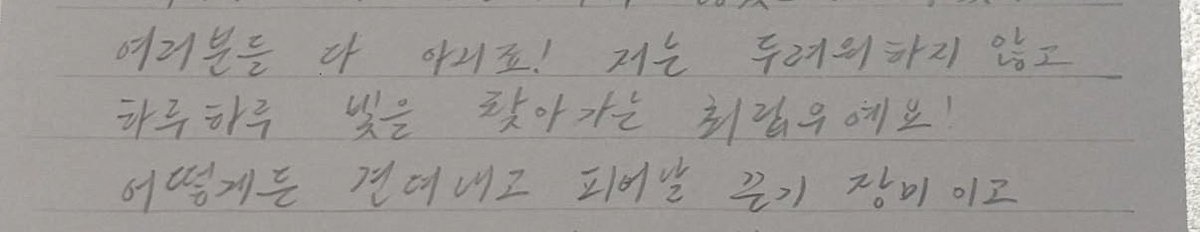 여러분들 다 아리죠! 저는 두려워하지 않고
하루하루 빛을 찾아가는 최립우예요!
어떻게든 견뎌내고 피어날 끈기 장미이고